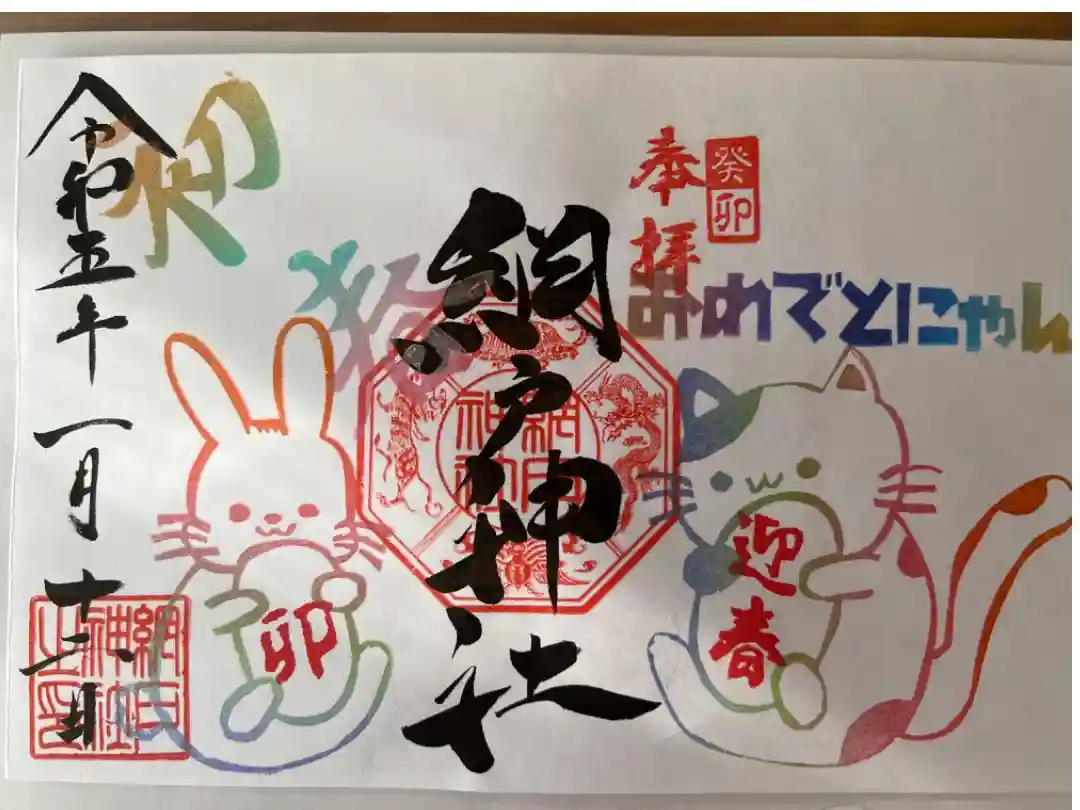 奉拝
癸卯
おめでとにゃん
迎春
網戸神社
網戸神社
初
猫
卯
令和五年一月十二日
網戸神社之印